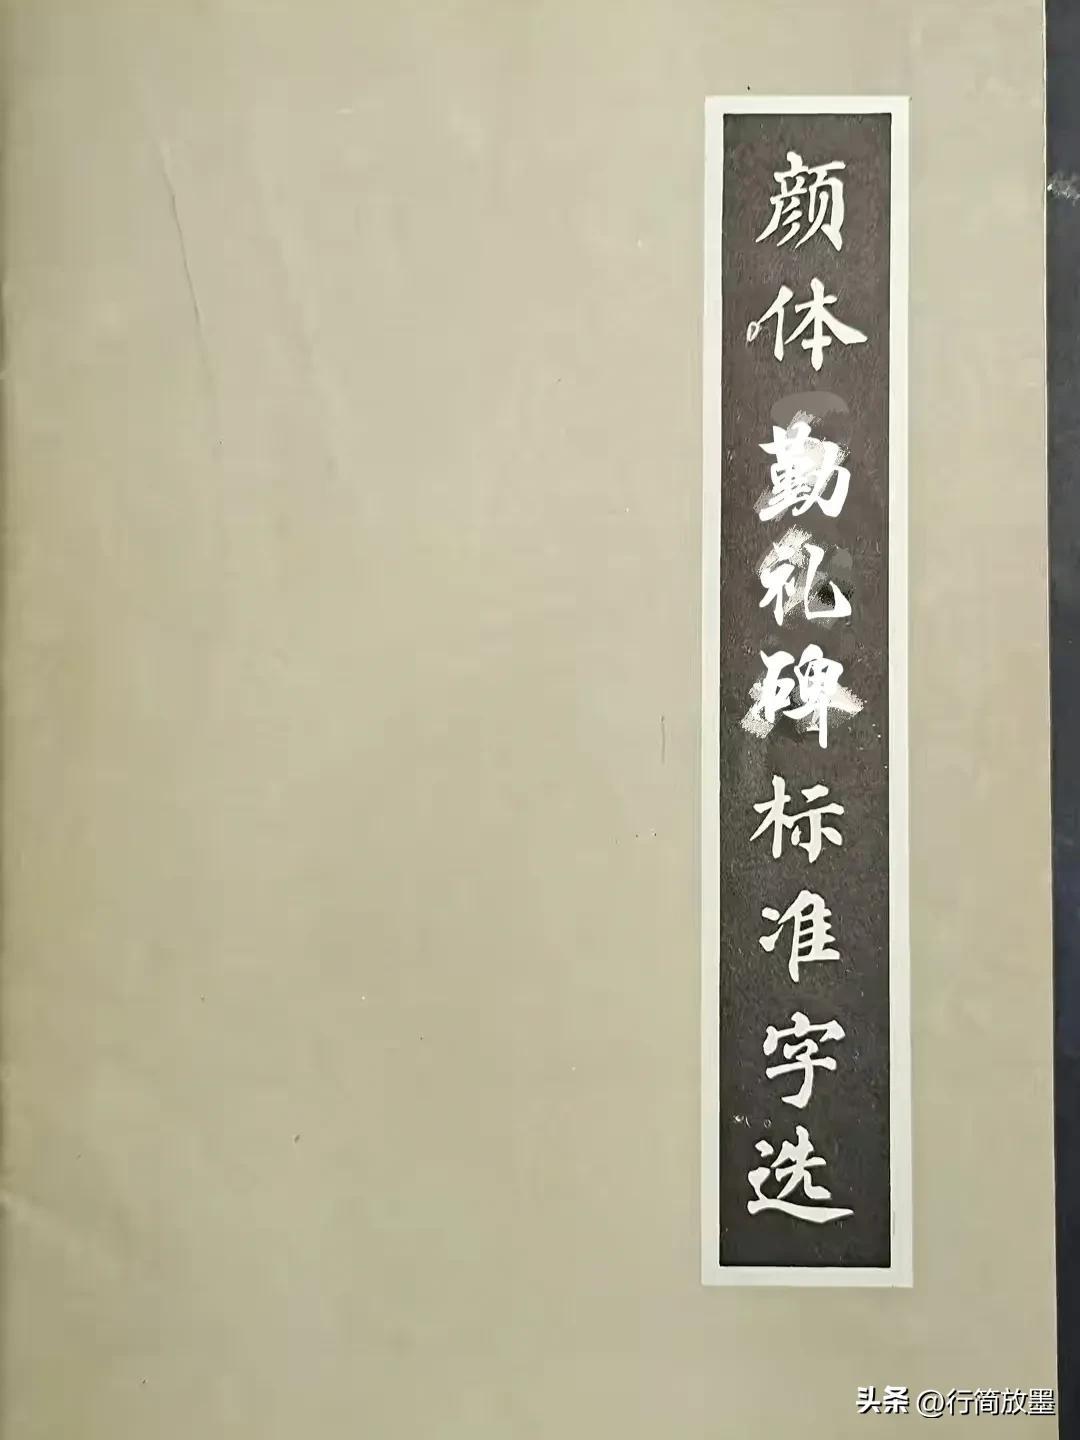 颜体勤礼碑标准字选
头条 @行简放墨